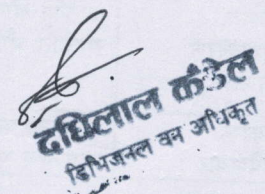 दधिलाल कँडेल
डिभिजनल वन अधिकृत